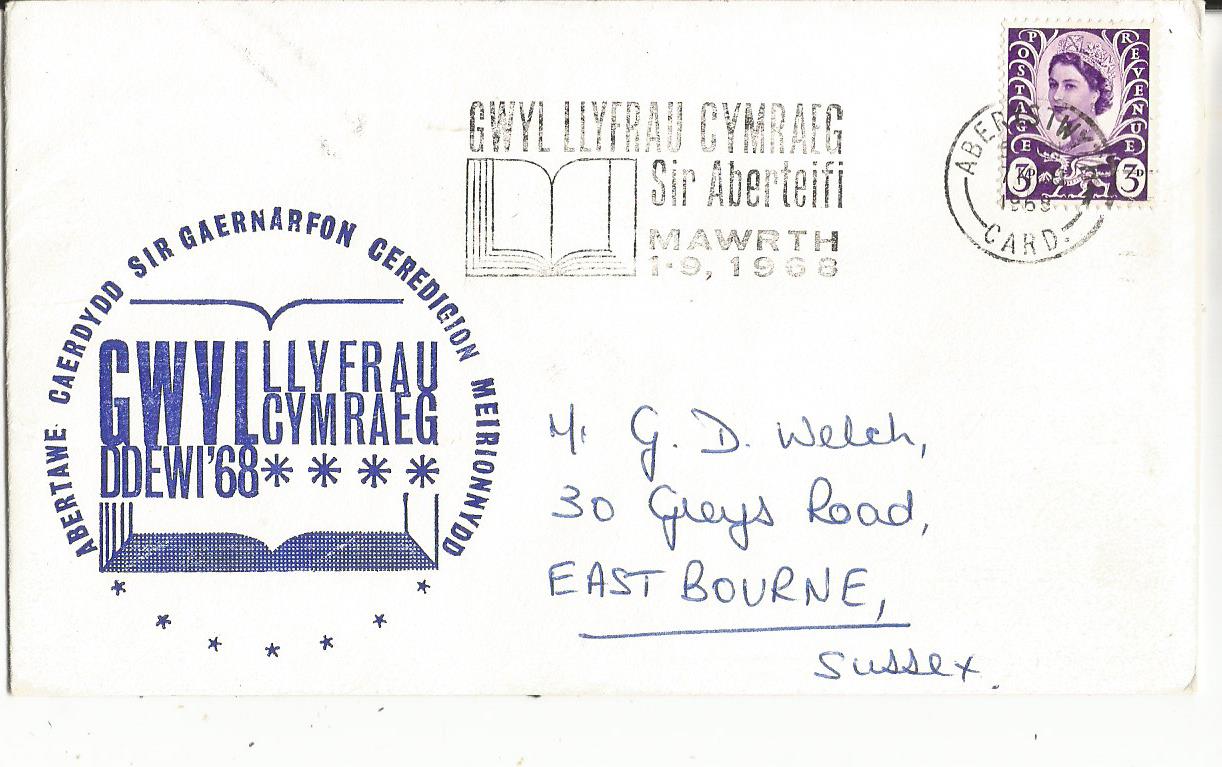 GWYL LLYFRAU CYMRAEG
Sir Aberteifi
MAWRTH
1-9, 1968
POSTAGE REVENUE
3D 3D
CARD.
1968
ABERTAWE CAERDYDD SIR GAERNARFON CEREDIGION MEIRIONNYDD
GWYL LLYFRAU
CYMRAEG
DDEWI '68 * * * *
Mr G. D. Welch,
30 Greys Road,
EASTBOURNE,
Sussex.